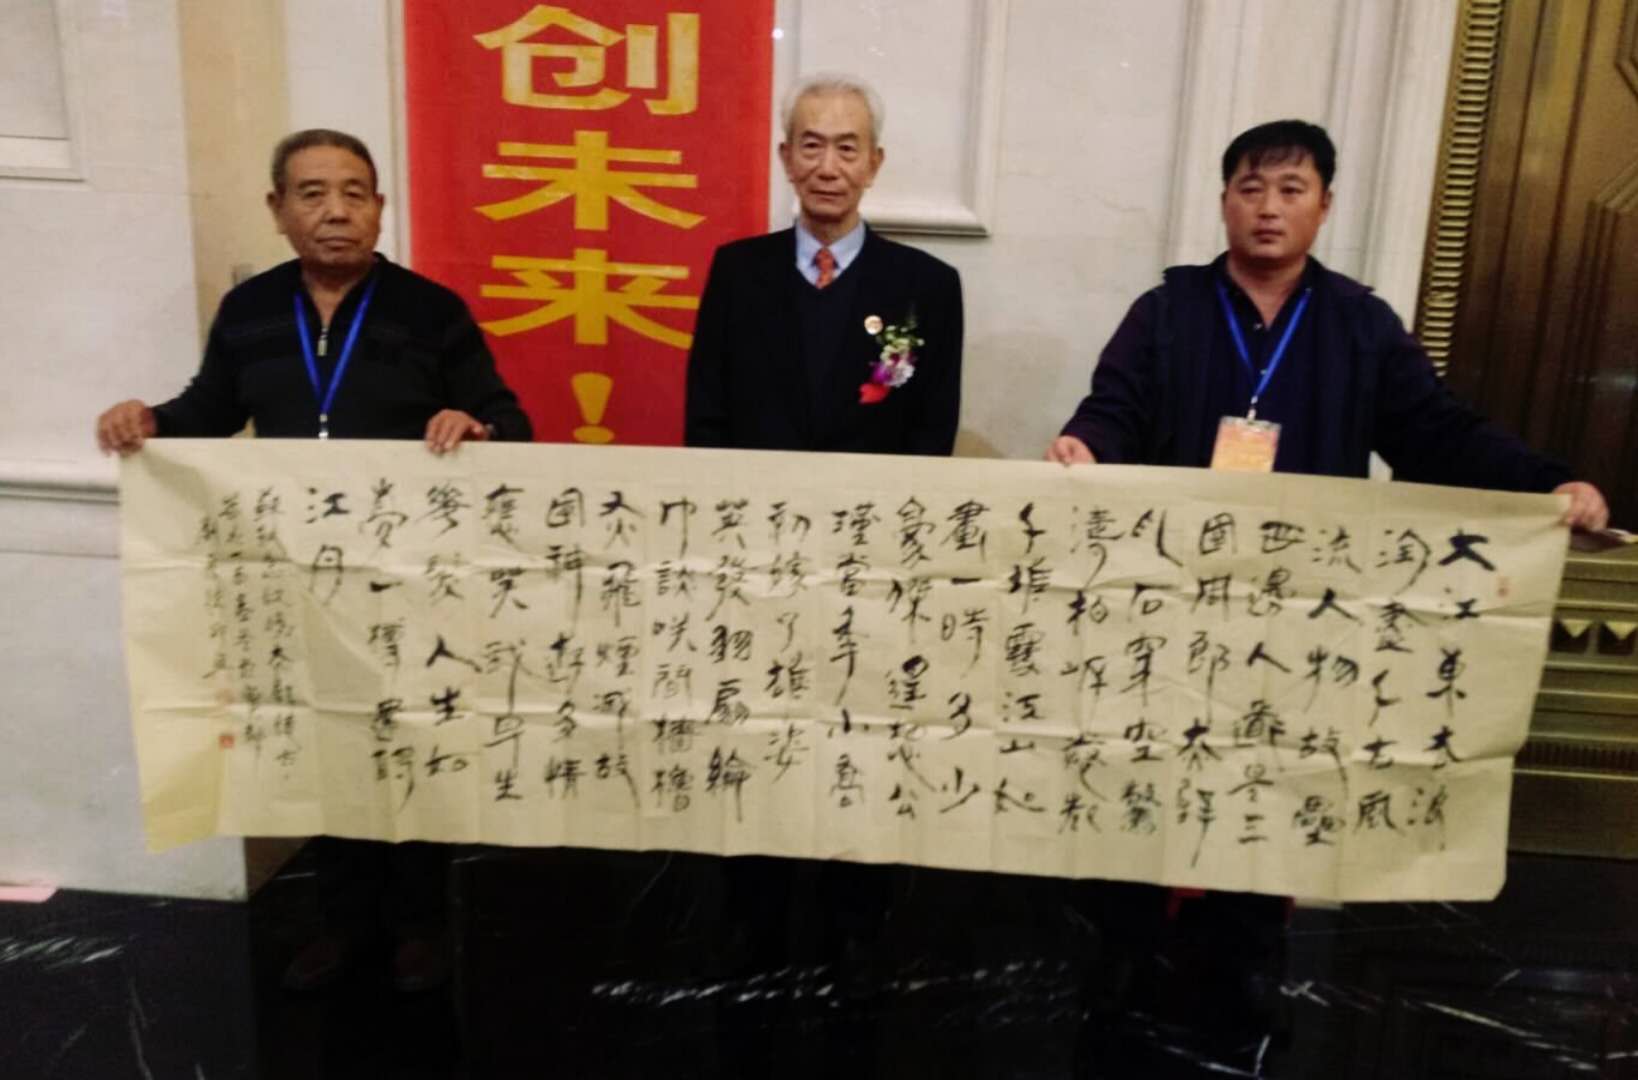 创未来！
大江東去浪
淘盡千古風
流人物故壘
西邊人道是三
國周郎赤壁
亂石穿空驚
濤拍岸
千堆雪江山如
畫一時多少
豪傑遥想公
瑾當年小喬
初嫁了雄姿
英發羽扇綸
巾談咲間檣櫓
灰飛煙滅故
國神遊多情
應笑我早生
華髮人生如
夢一樽還酹
江月
蘇軾念奴嬌赤壁懷古